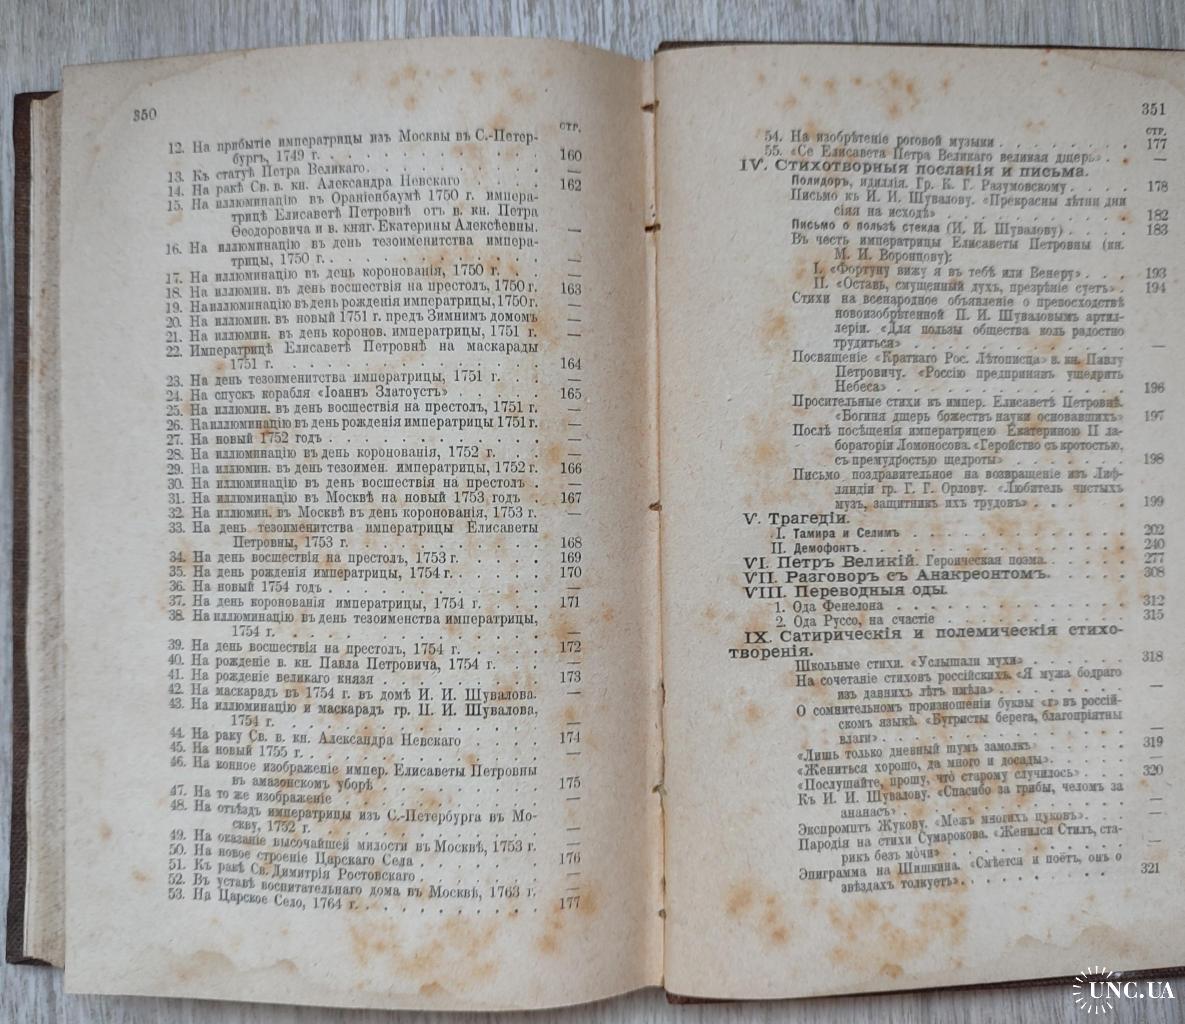 350
стр.
12. На прибытіе императрицы изъ Москвы въ С.-Петер-
бургъ, 1749 г. . . . . . . . . . 160
13. Къ статуѣ Петра Великаго. . . . . . . —
14. На ракѣ Св. в. кн. Александра Невскаго . . . . 162
15. На иллюминацію въ Ораніенбаумѣ 1750 г. импера-
трицѣ Елисаветѣ Петровнѣ отъ в. кн. Петра
Ѳеодоровича и в. княг. Екатерины Алексѣевны. —
16. На иллюминацію въ день тезоименитства импера-
трицы, 1750 г. . . . . . . . . . —
17. На иллюминацію въ день коронованія, 1750 г. . . —
18. На иллюмин. въ день восшествія на престолъ, 1750 г. 163
19. На иллюминацію въ день рожденія императрицы, 1750 г. —
20. На иллюмин. въ новый 1751 г. предъ Зимнимъ домомъ —
21. На иллюмин. въ день коронов. императрицы, 1751 г. —
22. Императрицѣ Елисаветѣ Петровнѣ на маскарады
1751 г. . . . . . . . . . . 164
23. На день тезоименитства императрицы, 1751 г. . . —
24. На спускъ корабля «Іоаннъ Златоустъ» . . . . 165
25. На иллюмин. въ день восшествія на престолъ, 1751 г. —
26. На иллюминацію въ день рожденія императрицы 1751 г. —
27. На новый 1752 годъ . . . . . . . . —
28. На иллюминацію въ день коронованія, 1752 г. . . —
29. На иллюмин. въ день тезоимен. императрицы, 1752 г. 166
30. На иллюминацію въ день восшествія на престолъ . —
31. На иллюминацію въ Москвѣ на новый 1753 годъ . 167
32. На иллюмин. въ Москвѣ въ день коронованія, 1753 г. —
33. На день тезоименитства императрицы Елисаветы
Петровны, 1753 г. . . . . . . . . 168
34. На день восшествія на престолъ, 1753 г. . . . . 169
35. На день рожденія императрицы, 1754 г. . . . . 170
36. На новый 1754 годъ . . . . . . . . —
37. На день коронованія императрицы, 1754 г. . . . 171
38. На иллюминацію въ день тезоименства императрицы,
1754 г. . . . . . . . . . . —
39. На день восшествія на престолъ, 1754 г. . . . . 172
40. На рожденіе в. кн. Павла Петровича, 1754 г. . . —
41. На рожденіе великаго князя . . . . . . 173
42. На маскарадъ въ 1754 г. въ домѣ И. И. Шувалова. —
43. На иллюминацію и маскарадъ гр. П. И. Шувалова,
1754 г. . . . . . . . . . . —
44. На раку Св. в. кн. Александра Невскаго . . . . 174
45. На новый 1755 г. . . . . . . . . . —
46. На конное изображеніе импер. Елисаветы Петровны
въ амазонскомъ уборѣ . . . . . . . 175
47. На то же изображеніе . . . . . . . —
48. На отъѣздъ императрицы изъ С.-Петербурга въ Мо-
скву, 1752 г. . . . . . . . . . —
49. На оказаніе высочайшей милости въ Москвѣ, 1753 г. —
50. На новое строеніе Царскаго Села . . . . . . 176
51. Къ ракѣ Св. Димитрія Ростовскаго . . . . . —
52. Въ уставѣ воспитательнаго дома въ Москвѣ, 1763 г. —
53. На Царское Село, 1764 г. . . . . . . . 177
351
стр.
54. На изобрѣтеніе роговой музыки . . . . . . 177
55. «Се Елисавета Петра Великаго великая дщерь» . . —
IV. Стихотворныя посланія и письма.
Полидоръ, идиллія. Гр. К. Г. Разумовскому . . . . 178
Письмо къ И. И. Шувалову. «Прекрасны лѣтни дни
сіяя на исходѣ» . . . . . . . . . 182
Письмо о пользѣ стекла (И. И. Шувалову) . . . . 183
Въ честь императрицы Елисаветы Петровны (кн.
М. И. Воронцову):
I. «Фортуну вижу я въ тебѣ или Венеру» . . . 193
II. «Оставь, смущенный духъ, презрѣніе суетъ» . 194
Стихи на всенародное объявленіе о превосходствѣ
новоизобрѣтенной П. И. Шуваловымъ артил-
леріи. «Для пользы общества коль радостно
трудиться» . . . . . . . . . . —
Посвященіе «Краткаго Рос. Лѣтописца» в. кн. Павлу
Петровичу. «Россію предпріявъ ущедрить
Небеса» . . . . . . . . . . . 196
Просительные стихи къ импер. Елисаветѣ Петровнѣ.
«Богиня дщерь божествъ науки основавшихъ» 197
Послѣ посѣщенія императрицею Екатериною II ла-
бораторіи Ломоносова. «Геройство съ кротостью,
съ премудростью щедроты» . . . . . . . 198
Письмо поздравительное на возвращеніе изъ Лиф-
ляндіи гр. Г. Г. Орлову. «Любитель чистыхъ
музъ, защитникъ ихъ трудовъ» . . . . . 199
V. Трагедіи.
I. Тамира и Селимъ . . . . . . . . . 202
II. Демофонтъ . . . . . . . . . . . 240
VI. Петръ Великій. Героическая поэма. . . . . 277
VII. Разговоръ съ Анакреонтомъ. . . . . . 308
VIII. Переводныя оды.
1. Ода Фенелона . . . . . . . . . . 312
2. Ода Руссо, на счастіе . . . . . . . . 315
IX. Сатирическія и полемическія стихо-
творенія.
Школьные стихи. «Услышали мухи» . . . . . . 318
На сочетаніе стиховъ россійскихъ. «Я мужа бодраго
изъ давнихъ лѣтъ имѣла» . . . . . . . —
О сомнительномъ произношеніи буквы «г» въ россій-
скомъ языкѣ. «Бугристы берега, благопріятны
влаги» . . . . . . . . . . . —
«Лишь только дневный шумъ замолкъ» . . . . . 319
«Жениться хорошо, да много и досады» . . . . . —
«Послушайте, прошу, что старому случилось» . . . 320
Къ И. И. Шувалову. «Спасибо за грибы, челомъ за
ананасъ» . . . . . . . . . . . —
Экспромптъ Жукову. «Межъ многихъ цуковъ» . . . —
Пародія на стихи Сумарокова. «Женился Стилъ, ста-
рикъ безъ мочи» . . . . . . . . . —
Эпиграмма на Шишкина. «Смѣется и поётъ, онъ о
звѣздахъ толкуетъ» . . . . . . . . 321
UNC.UA